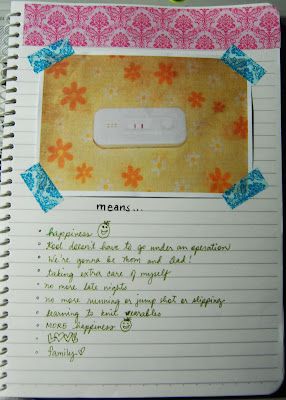 means...
happiness
doesn't have to go under an operation
We're gonna be Mom and Dad!
taking extra care of myself
no more late nights
no more running or jump shot or slipping
learning to knit wearables
MORE happiness
LOVE
family